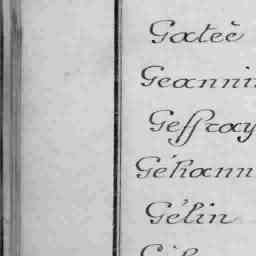 Gateè
Geannin
Geffray
Géhann
Gélin